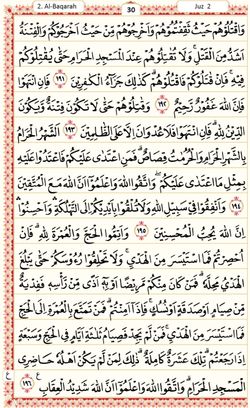 2. Al-Baqarah 30 Juz 2
وَاقْتُلُوْهُمْ حَيْثُ ثَقِفْتُمُوْهُمْ وَاَخْرِجُوْهُمْ مِّنْ حَيْثُ اَخْرَجُوْكُمْ وَالْفِتْنَةُ
اَشَدُّ مِنَ الْقَتْلِ ۚ وَلَا تُقٰتِلُوْهُمْ عِنْدَ الْمَسْجِدِ الْحَرَامِ حَتّٰى يُقٰتِلُوْكُمْ
فِيْهِ ۚ فَاِنْ قٰتَلُوْكُمْ فَاقْتُلُوْهُمْ ؕ كَذٰلِكَ جَزَآءُ الْكٰفِرِيْنَ ﴿۱۹۱﴾ فَاِنِ انْتَهَوْا
فَاِنَّ اللّٰهَ غَفُوْرٌ رَّحِيْمٌ ﴿۱۹۲﴾ وَقٰتِلُوْهُمْ حَتّٰى لَا تَكُوْنَ فِتْنَةٌ وَّيَكُوْنَ
الدِّيْنُ لِلّٰهِ ؕ فَاِنِ انْتَهَوْا فَلَا عُدْوَانَ اِلَّا عَلَى الظّٰلِمِيْنَ ﴿۱۹۳﴾ اَلشَّهْرُ الْحَرَامُ
بِالشَّهْرِ الْحَرَامِ وَالْحُرُمٰتُ قِصَاصٌ ؕ فَمَنِ اعْتَدٰى عَلَيْكُمْ فَاعْتَدُوْا عَلَيْهِ
بِمِثْلِ مَا اعْتَدٰى عَلَيْكُمْ ۪ وَاتَّقُوا اللّٰهَ وَاعْلَمُوْٓا اَنَّ اللّٰهَ مَعَ الْمُتَّقِيْنَ
﴿۱۹۴﴾ وَاَنْفِقُوْا فِيْ سَبِيْلِ اللّٰهِ وَلَا تُلْقُوْا بِاَيْدِيْكُمْ اِلَى التَّهْلُكَةِ ۛ وَاَحْسِنُوْا ۛ
اِنَّ اللّٰهَ يُحِبُّ الْمُحْسِنِيْنَ ﴿۱۹۵﴾ وَاَتِمُّوا الْحَجَّ وَالْعُمْرَةَ لِلّٰهِ ؕ فَاِنْ
اُحْصِرْتُمْ فَمَا اسْتَيْسَرَ مِنَ الْهَدْيِ ۚ وَلَا تَحْلِقُوْا رُءُوْسَكُمْ حَتّٰى يَبْلُغَ
الْهَدْيُ مَحِلَّهٗ ؕ فَمَنْ كَانَ مِنْكُمْ مَّرِيْضًا اَوْ بِهٖٓ اَذًى مِّنْ رَّاْسِهٖ فَفِدْيَةٌ
مِّنْ صِيَامٍ اَوْ صَدَقَةٍ اَوْ نُسُكٍ ۚ فَاِذَآ اَمِنْتُمْ ۥ فَمَنْ تَمَتَّعَ بِالْعُمْرَةِ اِلَى الْحَجِّ
فَمَا اسْتَيْسَرَ مِنَ الْهَدْيِ ۚ فَمَنْ لَّمْ يَجِدْ فَصِيَامُ ثَلٰثَةِ اَيَّامٍ فِى الْحَجِّ وَسَبْعَةٍ
اِذَا رَجَعْتُمْ ؕ تِلْكَ عَشَرَةٌ كَامِلَةٌ ؕ ذٰلِكَ لِمَنْ لَّمْ يَكُنْ اَهْلُهٗ حَاضِرِى
الْمَسْجِدِ الْحَرَامِ ؕ وَاتَّقُوا اللّٰهَ وَاعْلَمُوْٓا اَنَّ اللّٰهَ شَدِيْدُ الْعِقَابِ ﴿۱۹۶﴾ ع